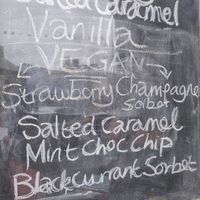 Salted Caramel
Vanilla
VEGAN
Strawbony Champagne
Sorbet
Salted Caramel
Mint Choc Chip
Blackcurrant Sorbet